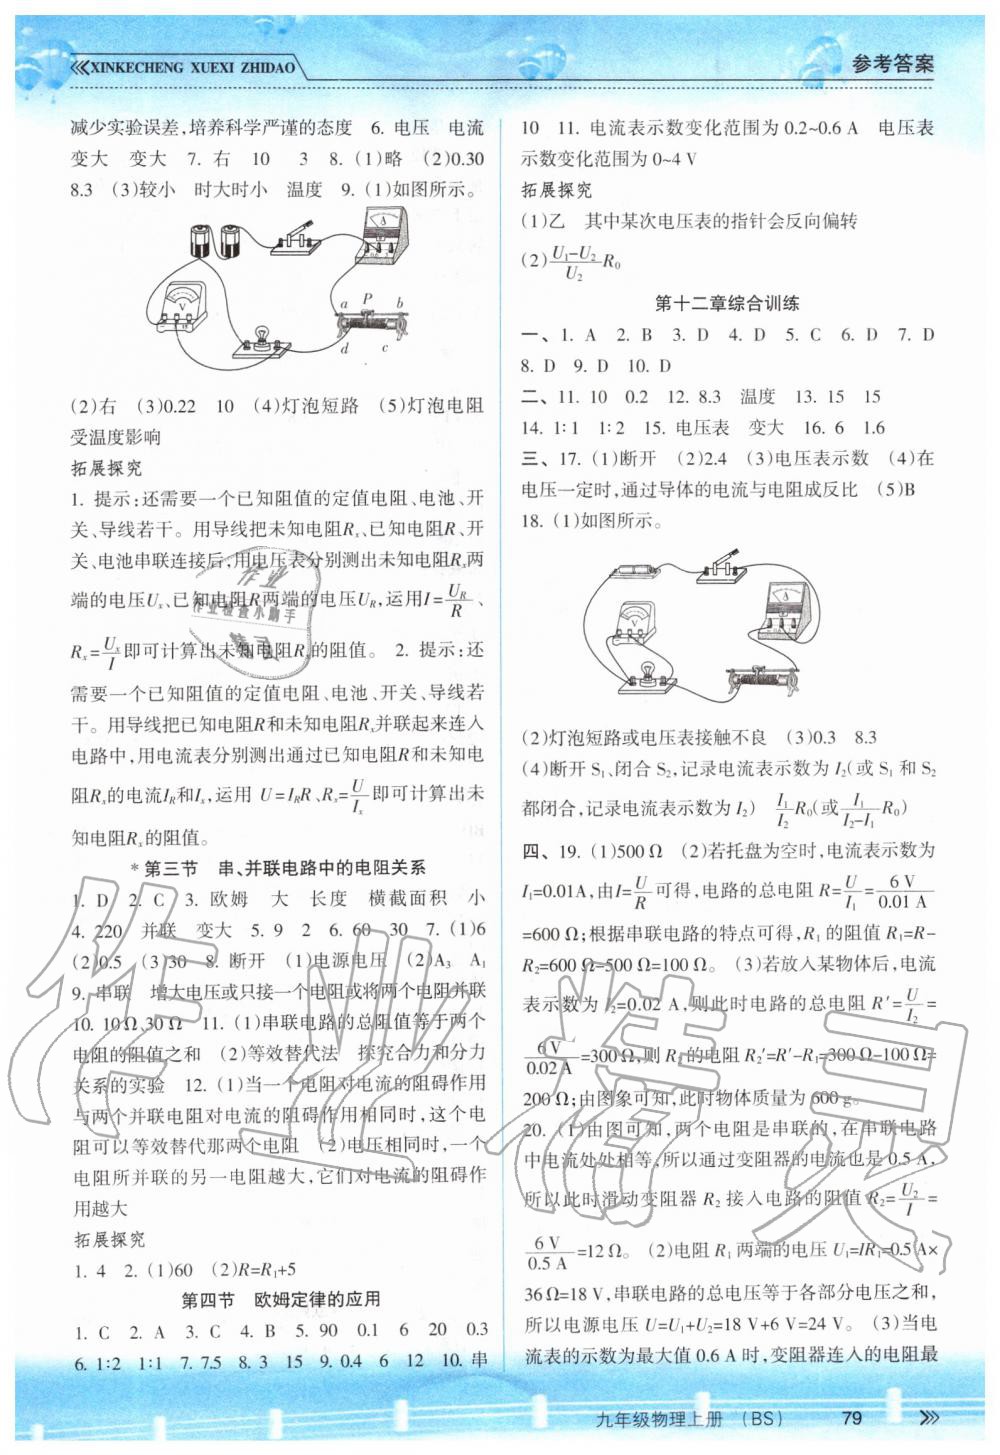 XINKECHENG XUEXI ZHIDAO
参考答案
减少实验误差,培养科学严谨的态度 6. 电压 电流
变大 变大 7. 右 10 3 8. (1)略 (2)0.30
8.3 (3)较小 时大时小 温度 9. (1)如图所示。
A
V
a P b
d c
(2)右 (3)0.22 10 (4)灯泡短路 (5)灯泡电阻
受温度影响
拓展探究
1. 提示:还需要一个已知阻值的定值电阻、电池、开
关、导线若干。用导线把未知电阻Rx、已知电阻R、开
关、电池串联连接后,用电压表分别测出未知电阻Rx两
端的电压Ux、已知电阻R两端的电压UR,运用I=UR/R、
Rx=Ux/I即可计算出未知电阻Rx的阻值。 2. 提示:还
需要一个已知阻值的定值电阻、电池、开关、导线若
干。用导线把已知电阻R和未知电阻Rx并联起来连入
电路中,用电流表分别测出通过已知电阻R和未知电
阻Rx的电流IR和Ix,运用 U=IRR、Rx=U/Ix即可计算出未
知电阻Rx的阻值。
*第三节 串、并联电路中的电阻关系
1. D 2. C 3. 欧姆 大 长度 横截面积 小
4. 220 并联 变大 5. 9 2 6. 60 30 7. (1)6
(2)0.5 (3)30 8. 断开 (1)电源电压 (2)A3 A1
9. 串联 增大电压或只接一个电阻或将两个电阻并联
10. 10 Ω、30 Ω 11. (1)串联电路的总阻值等于两个
电阻的阻值之和 (2)等效替代法 探究合力和分力
关系的实验 12. (1)当一个电阻对电流的阻碍作用
与两个并联电阻对电流的阻碍作用相同时,这个电
阻可以等效替代那两个电阻 (2)电压相同时,一个
电阻所并联的另一电阻越大,它们对电流的阻碍作
用越大
拓展探究
1. 4 2. (1)60 (2)R=R1+5
第四节 欧姆定律的应用
1. C 2. A 3. C 4. B 5. 90 0.1 6 20 0.3
6. 1∶2 1∶1 7. 7.5 8. 3 15 9. 0.4 6 12 10. 串
10 11. 电流表示数变化范围为0.2~0.6 A 电压表
示数变化范围为0~4 V
拓展探究
(1)乙 其中某次电压表的指针会反向偏转
(2)(U1-U2)/U2 R0
第十二章综合训练
一、1. A 2. B 3. D 4. D 5. C 6. D 7. D
8. D 9. D 10. D
二、11. 10 0.2 12. 8.3 温度 13. 15 15
14. 1∶1 1∶2 15. 电压表 变大 16. 6 1.6
三、17. (1)断开 (2)2.4 (3)电压表示数 (4)在
电压一定时,通过导体的电流与电阻成反比 (5)B
18. (1)如图所示。
(2)灯泡短路或电压表接触不良 (3)0.3 8.3
(4)断开 S1、闭合 S2,记录电流表示数为 I2(或 S1 和 S2
都闭合,记录电流表示数为 I2) I1/I2 R0(或 I1/(I2-I1) R0)
四、19. (1)500 Ω (2)若托盘为空时,电流表示数为
I1=0.01A,由I=U/R可得,电路的总电阻 R=U/I1=6 V/0.01 A
=600 Ω;根据串联电路的特点可得,R1 的阻值 R1=R-
R2=600 Ω-500 Ω=100 Ω。 (3)若放入某物体后,电流
表示数为 I2=0.02 A,则此时电路的总电阻 R′=U/I2=
6 V/0.02 A=300 Ω,则 R2 的电阻 R2′=R′-R1=300 Ω-100 Ω=
200 Ω;由图象可知,此时物体质量为 600 g。
20. (1)由图可知,两个电阻是串联的,在串联电路
中电流处处相等,所以通过变阻器的电流也是 0.5 A,
所以此时滑动变阻器 R2 接入电路的阻值 R2=U2/I=
6 V/0.5 A=12 Ω。 (2)电阻 R1 两端的电压 U1=IR1=0.5 A×
36 Ω=18 V,串联电路的总电压等于各部分电压之和,
所以电源电压 U=U1+U2=18 V+6 V=24 V。 (3)当电
流表的示数为最大值 0.6 A 时,变阻器连入的电阻最
作业
作业检查小助手
精灵
作业精灵
九年级物理上册 (BS) 79